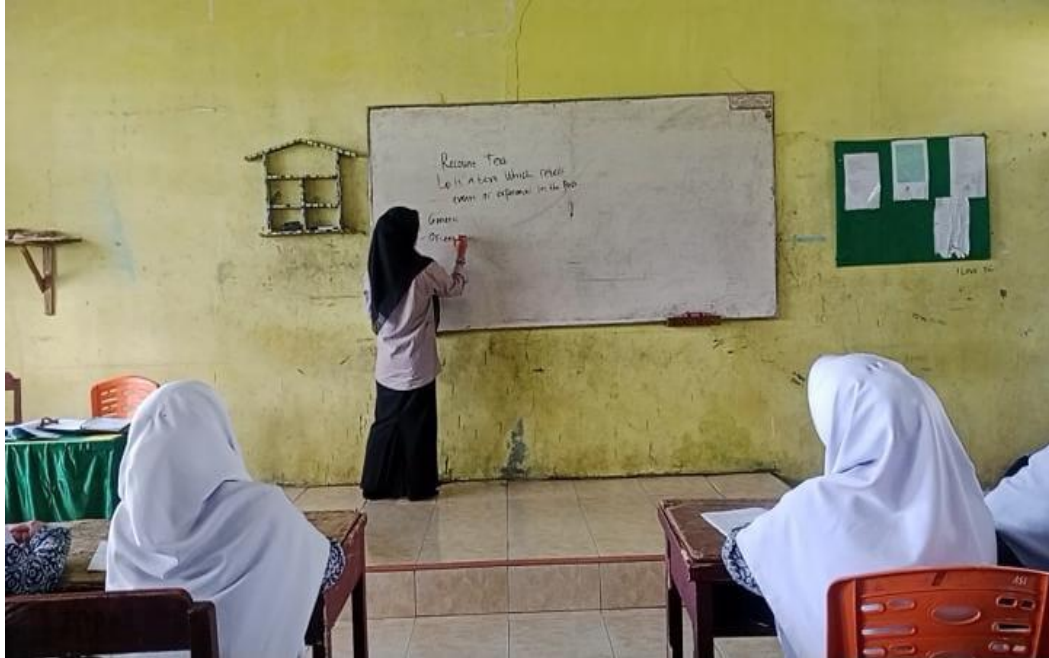 Recount Text
Lo is a text which retell
event or experience in the Past
Generic
- Orien
I Love